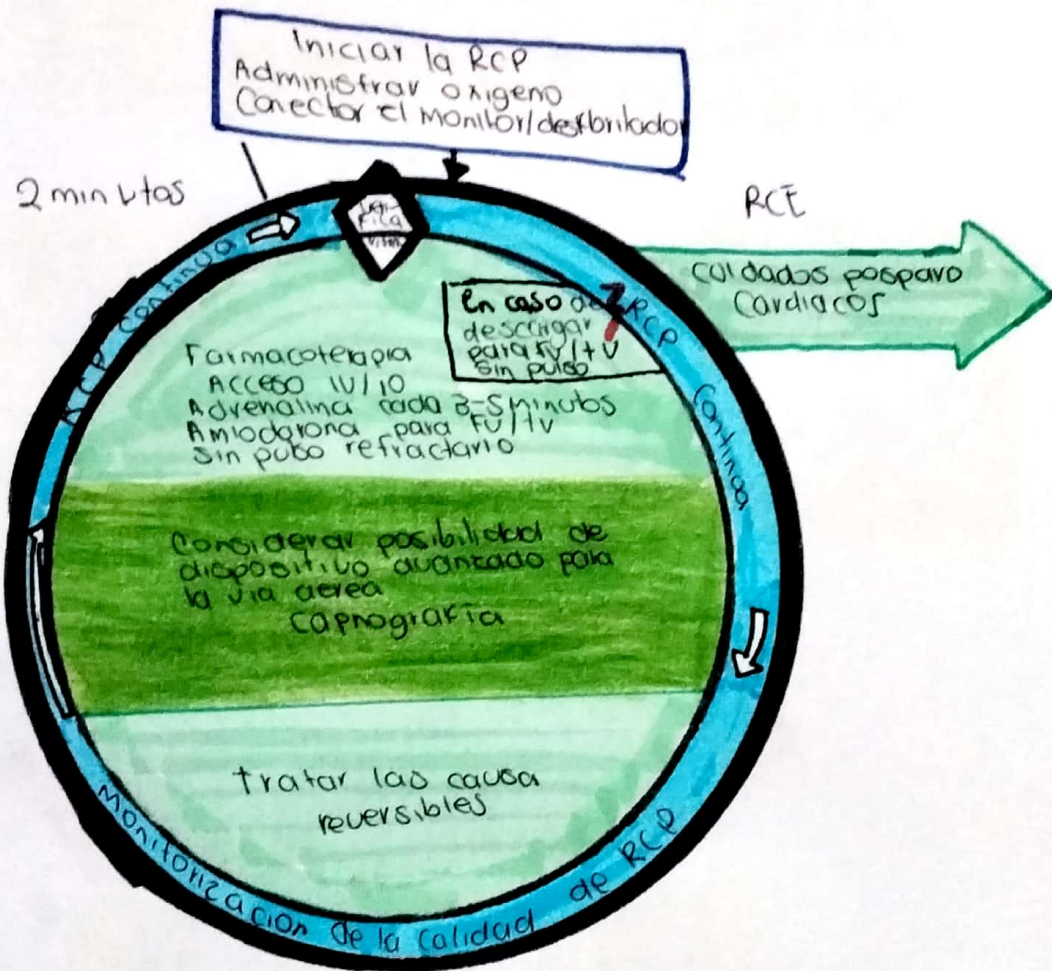 Iniciar la RCP
Administrar oxigeno
Conector el monitor/desfibrilador
2 minutos
RCE
Cuidados posparo
Cardiacos
RCP continua
RCP Continua
En caso de
descargar
para FV/TV
sin pulso
Farmacoterapia
ACCESO IV/IO
Adrenalina cada 3-5 minutos
Amiodarona para FV/TV
Sin pulso refractario
Considerar posibilidad de
dispositivo avanzado para
la via aerea
Capnografía
tratar las causa
reversibles
Monitorización de la calidad de RCP